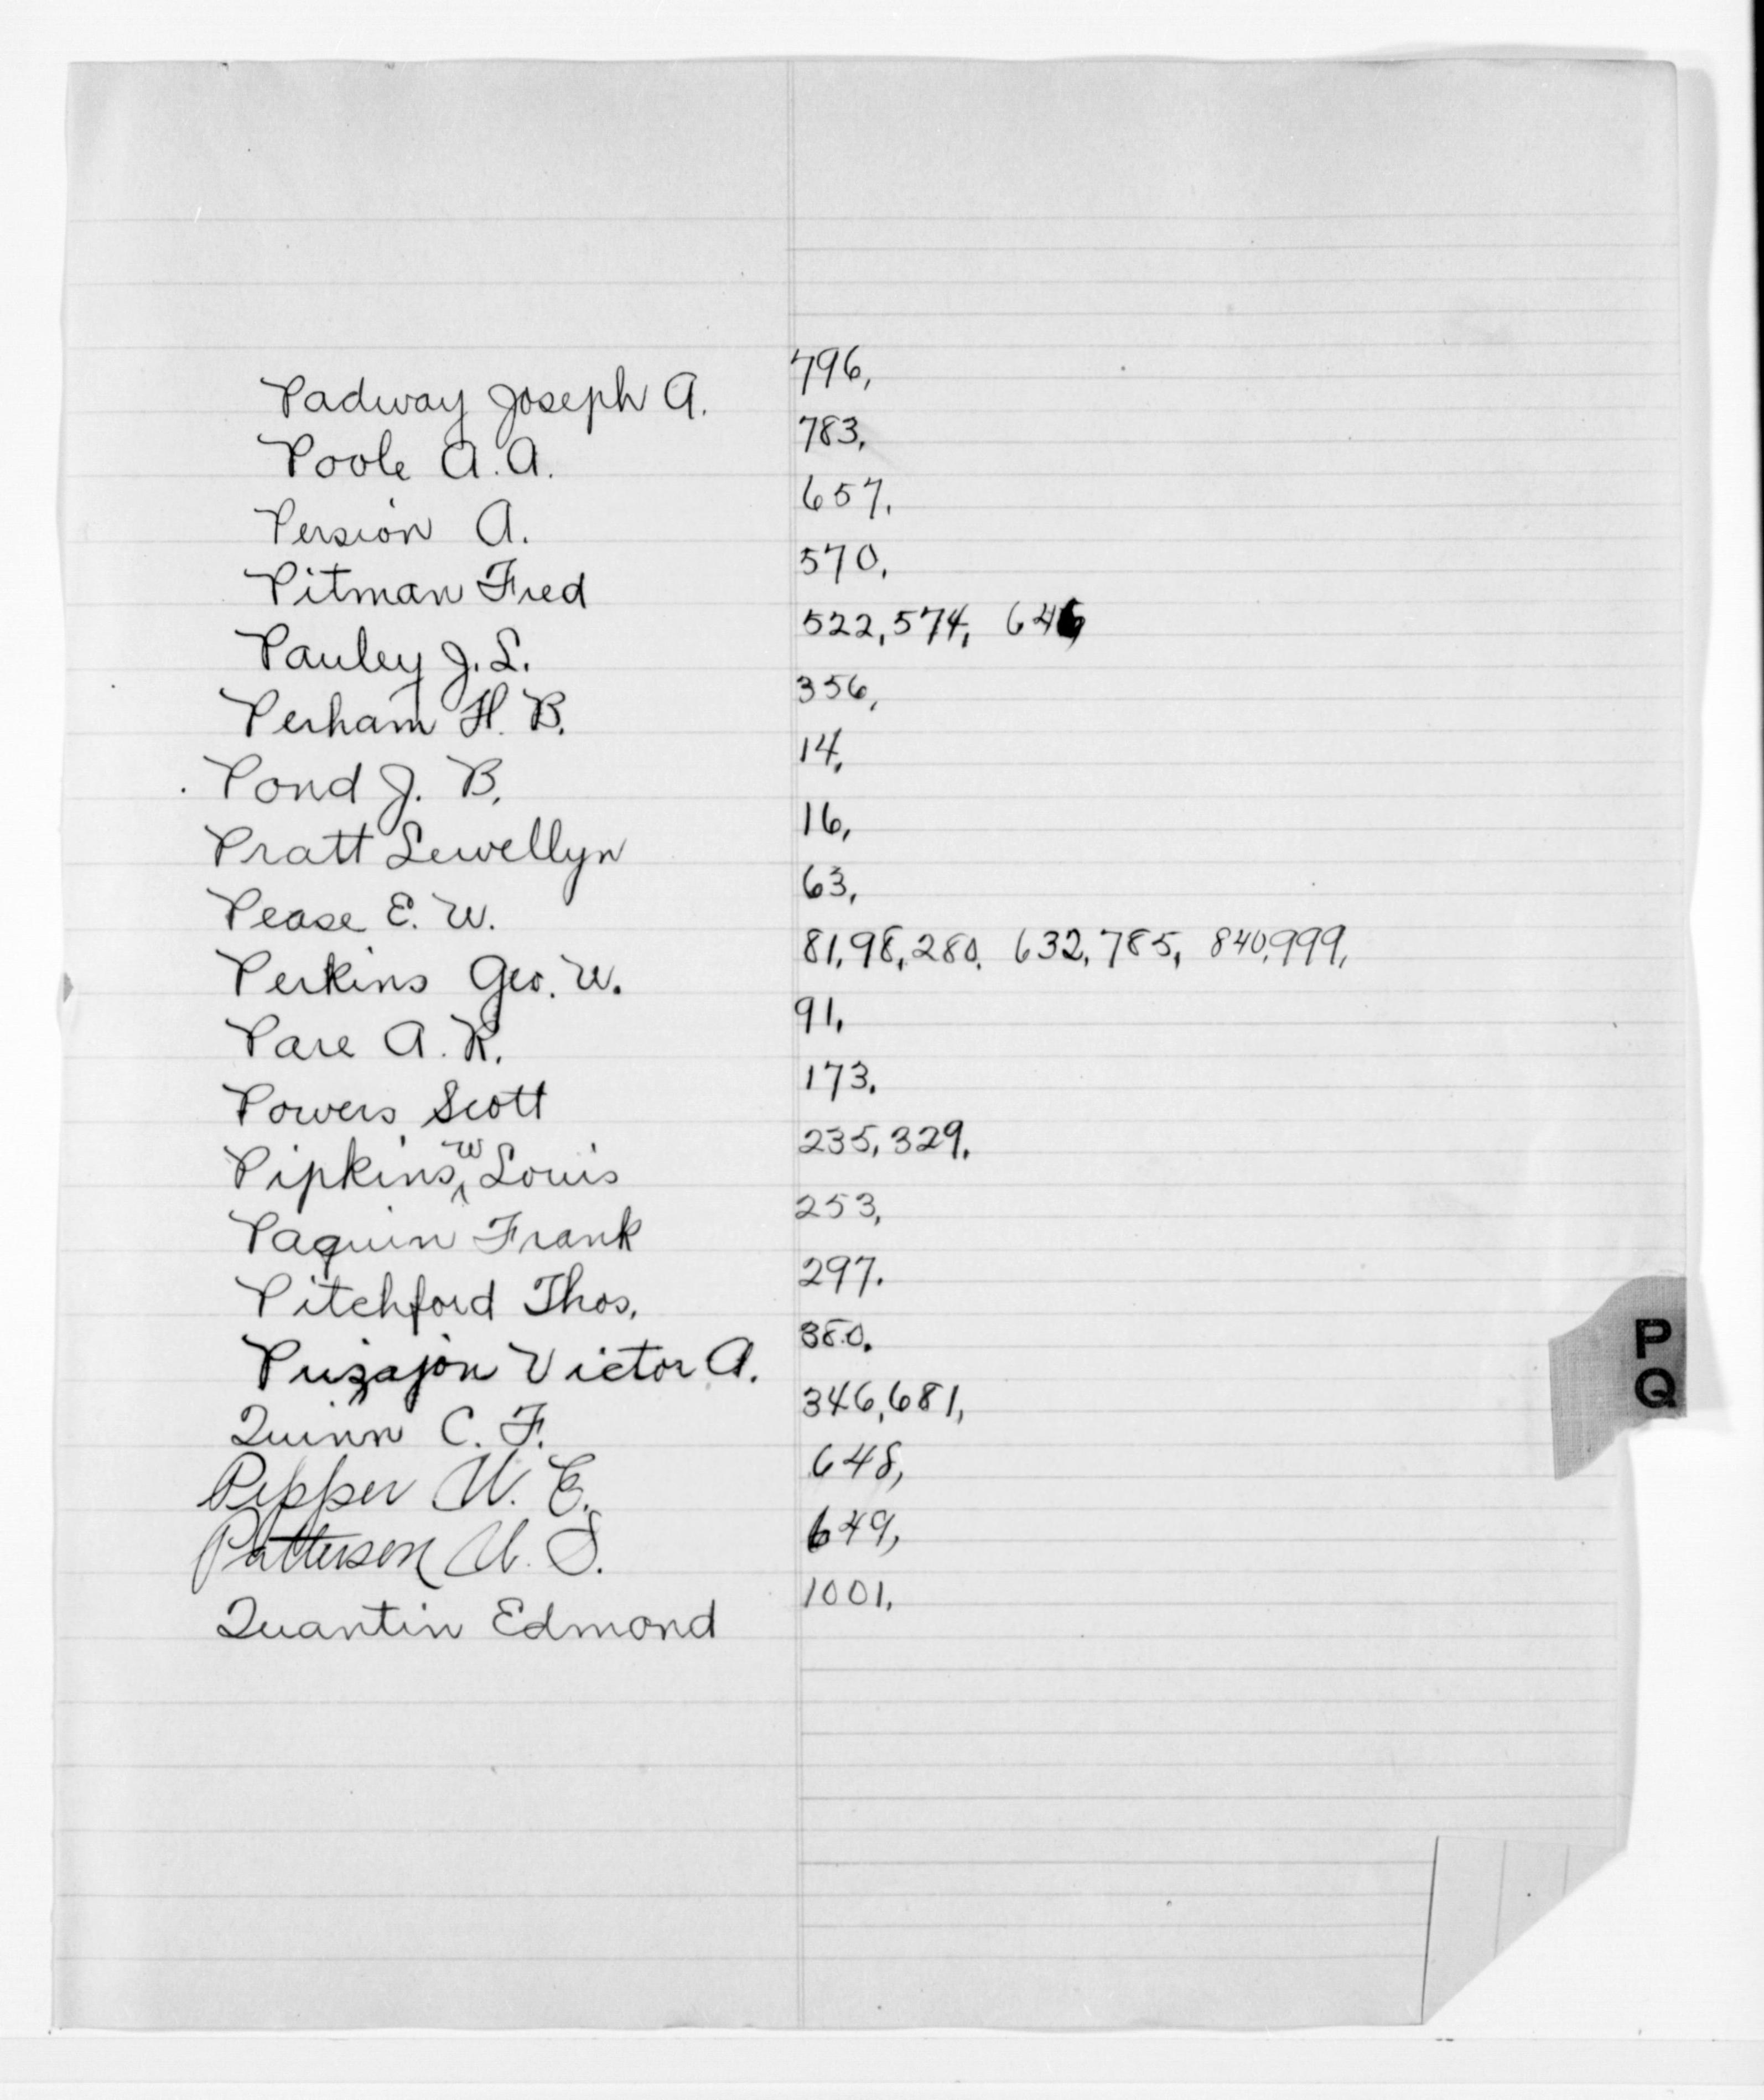 Padway Joseph A. 796,
Poole A. A. 783,
Persion A. 657,
Pitman Fred 570,
Pauley J. L. 522, 574, 646
Perham H. B. 356,
Pond J. B. 14,
Pratt Lewellyn 16,
Pease E. W. 63,
Perkins Geo. W. 81, 98, 280, 632, 785, 840, 999,
Pare A. R. 91,
Powers Scott 173.
Pipkins W Louis 235, 329.
Paquin Frank 253,
Pitchford Thos. 297.
Puizajon Victor A. 380.
Quinn C. F. 346, 681,
Pepper W. E. 648,
Patterson W. S. 649,
Quantin Edmond 1001.
P
Q